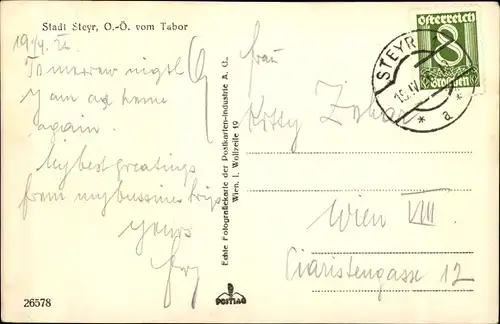 Stadt Steyr, O.-Ö. vom Tabor
Tomorrow night
I am at home
again.
My best greatings
from my bussines trip
yours
Frau
Kitty
Wien VIII
Piaristengasse 12
Echte Fotografiekarte der Postkarten-Industrie A. G.
Wien, I. Wollzeile 19
POSTIAG
26578
Österreich
8
Groschen
STEYR
15.IV
* a *